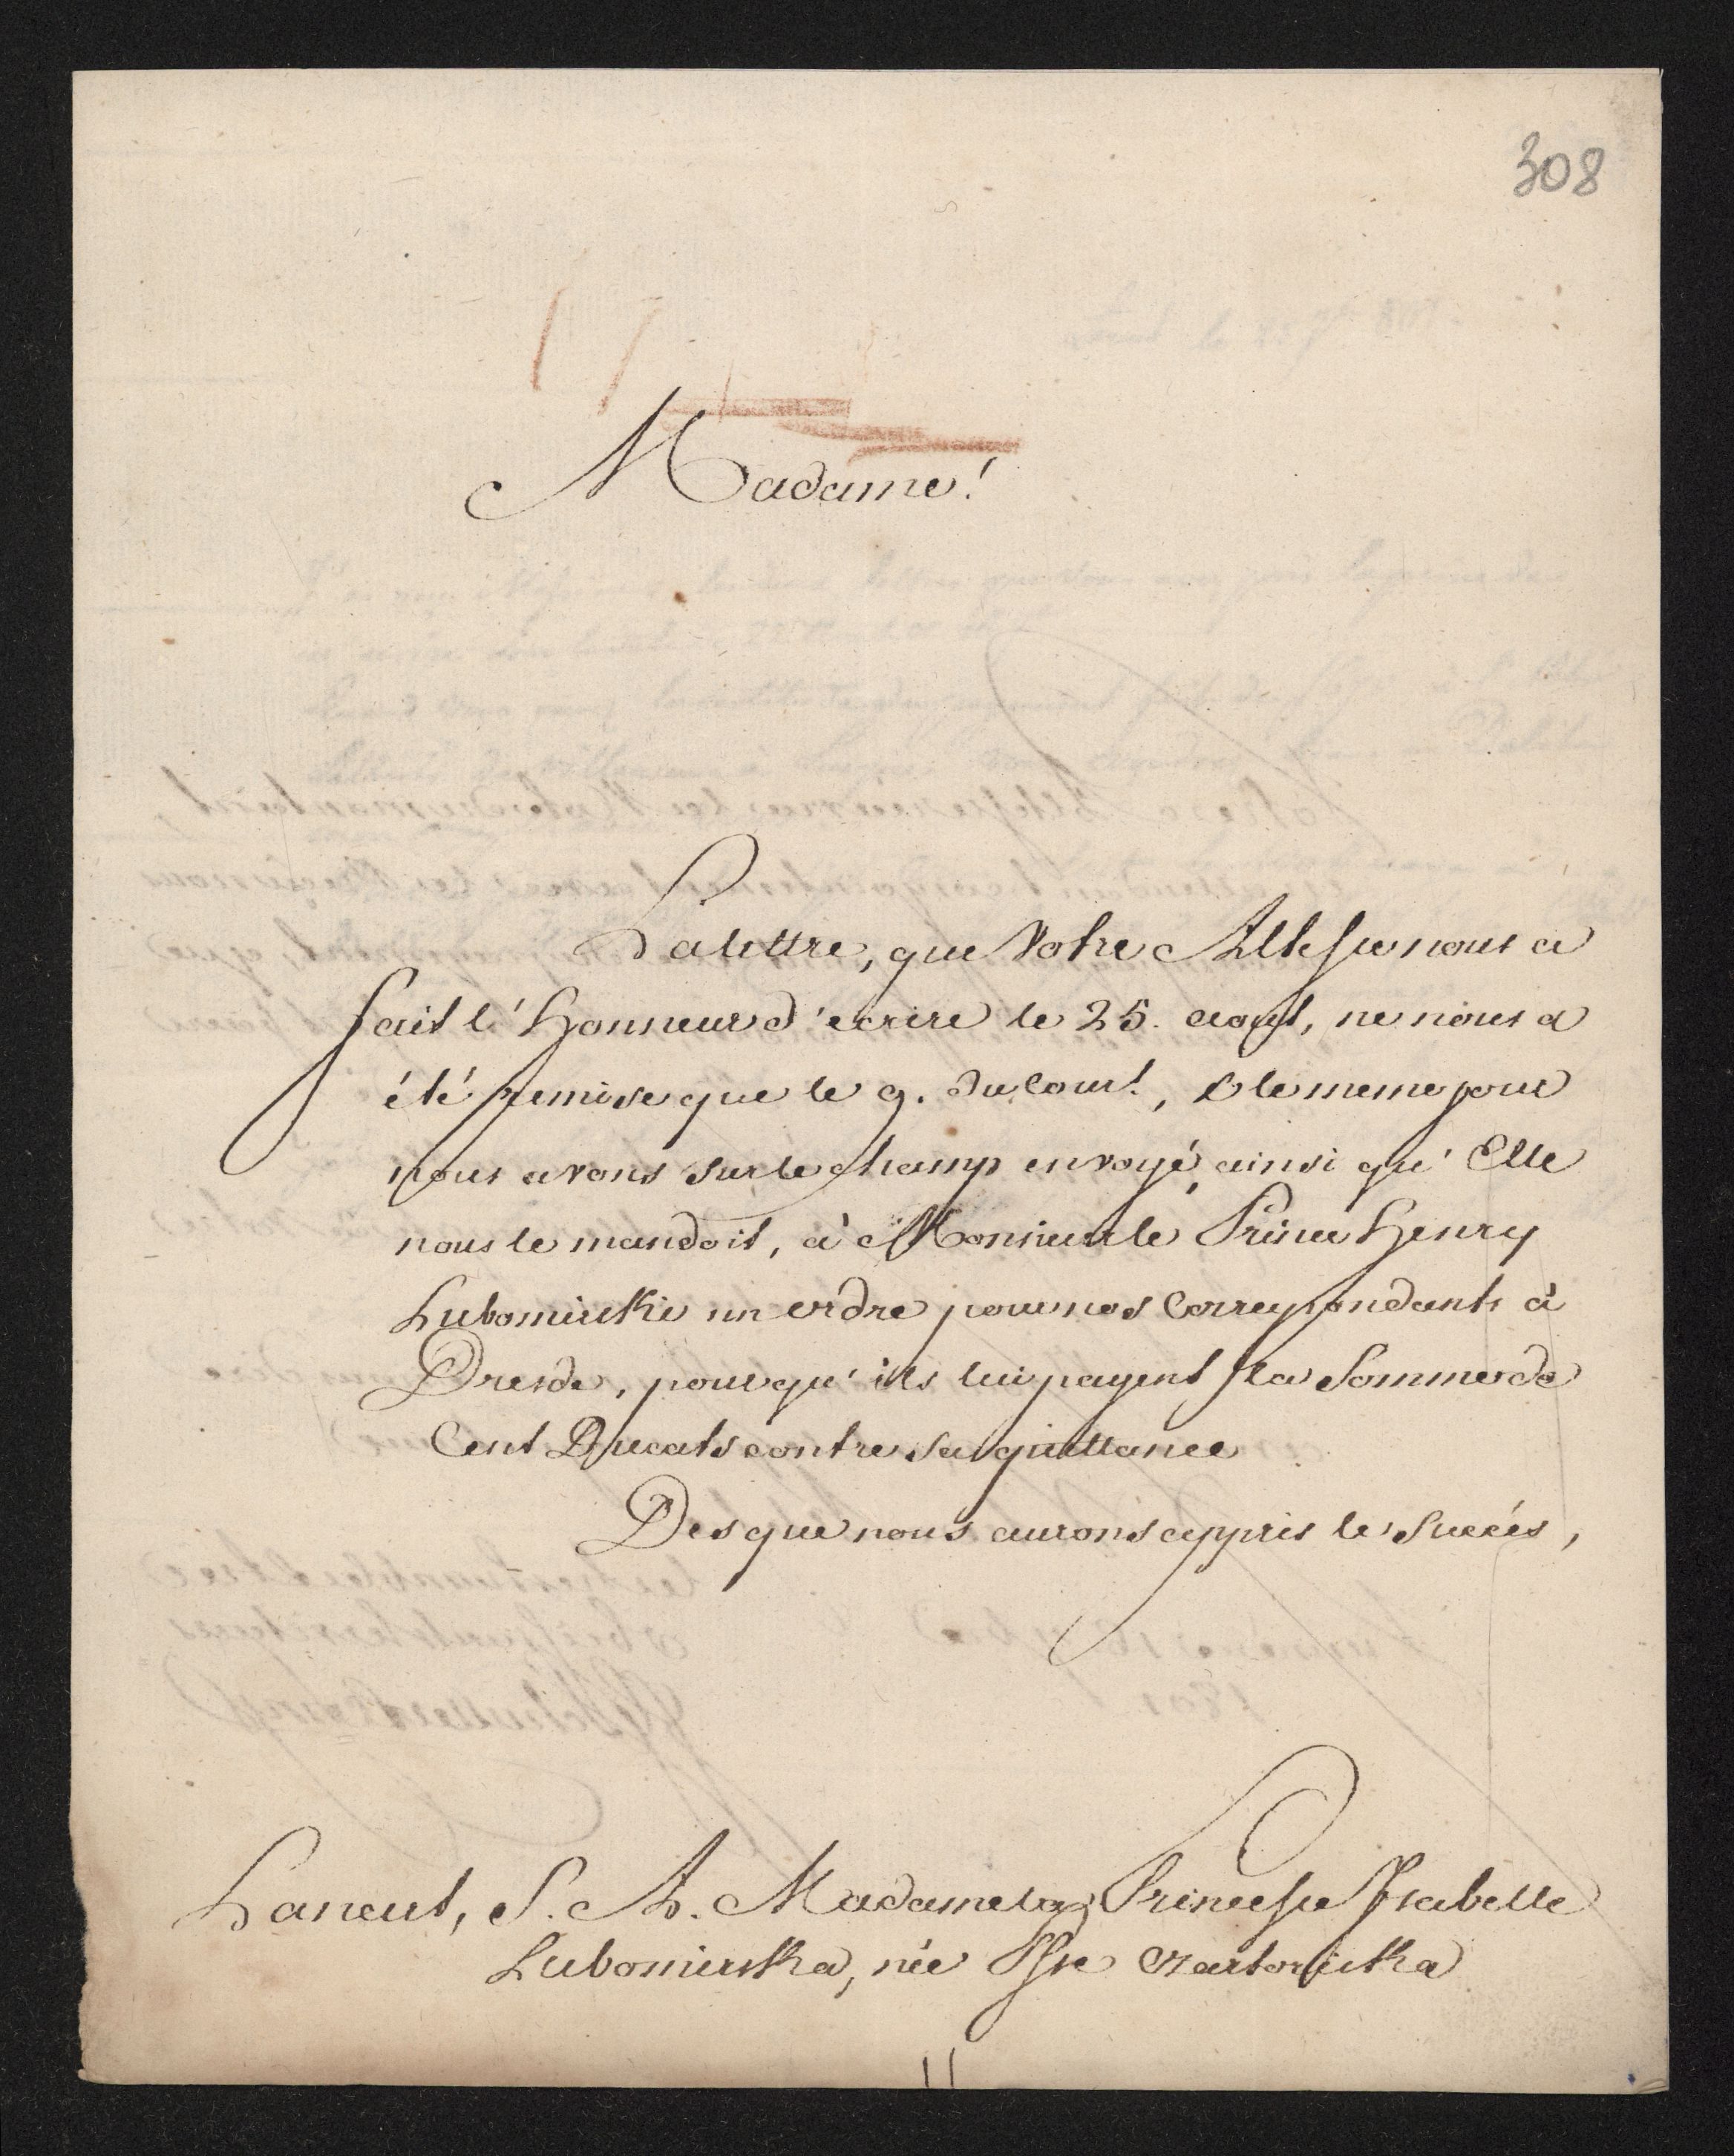 308
Madame!
La lettre, que Votre Altesse nous a
fait l'Honneur d'ecrire le 25. aoust, ne nous a
été remise que le 9. du Cour!, & le meme jour
nous avons sur le champ envoyé, ainsi qu' Elle
nous le mandoit, à Monsieur le Prince Henry
Lubomirski un ordre pour nos Correspondants à
Dresde, pour qu' ils lui payent la Somme de
Cent Ducats contre sa quittance
Des que nous aurons appris le Succés,
Lancut, S. A. Madame la Princesse Isabelle
Lubomirska, née Psse Czartoriska